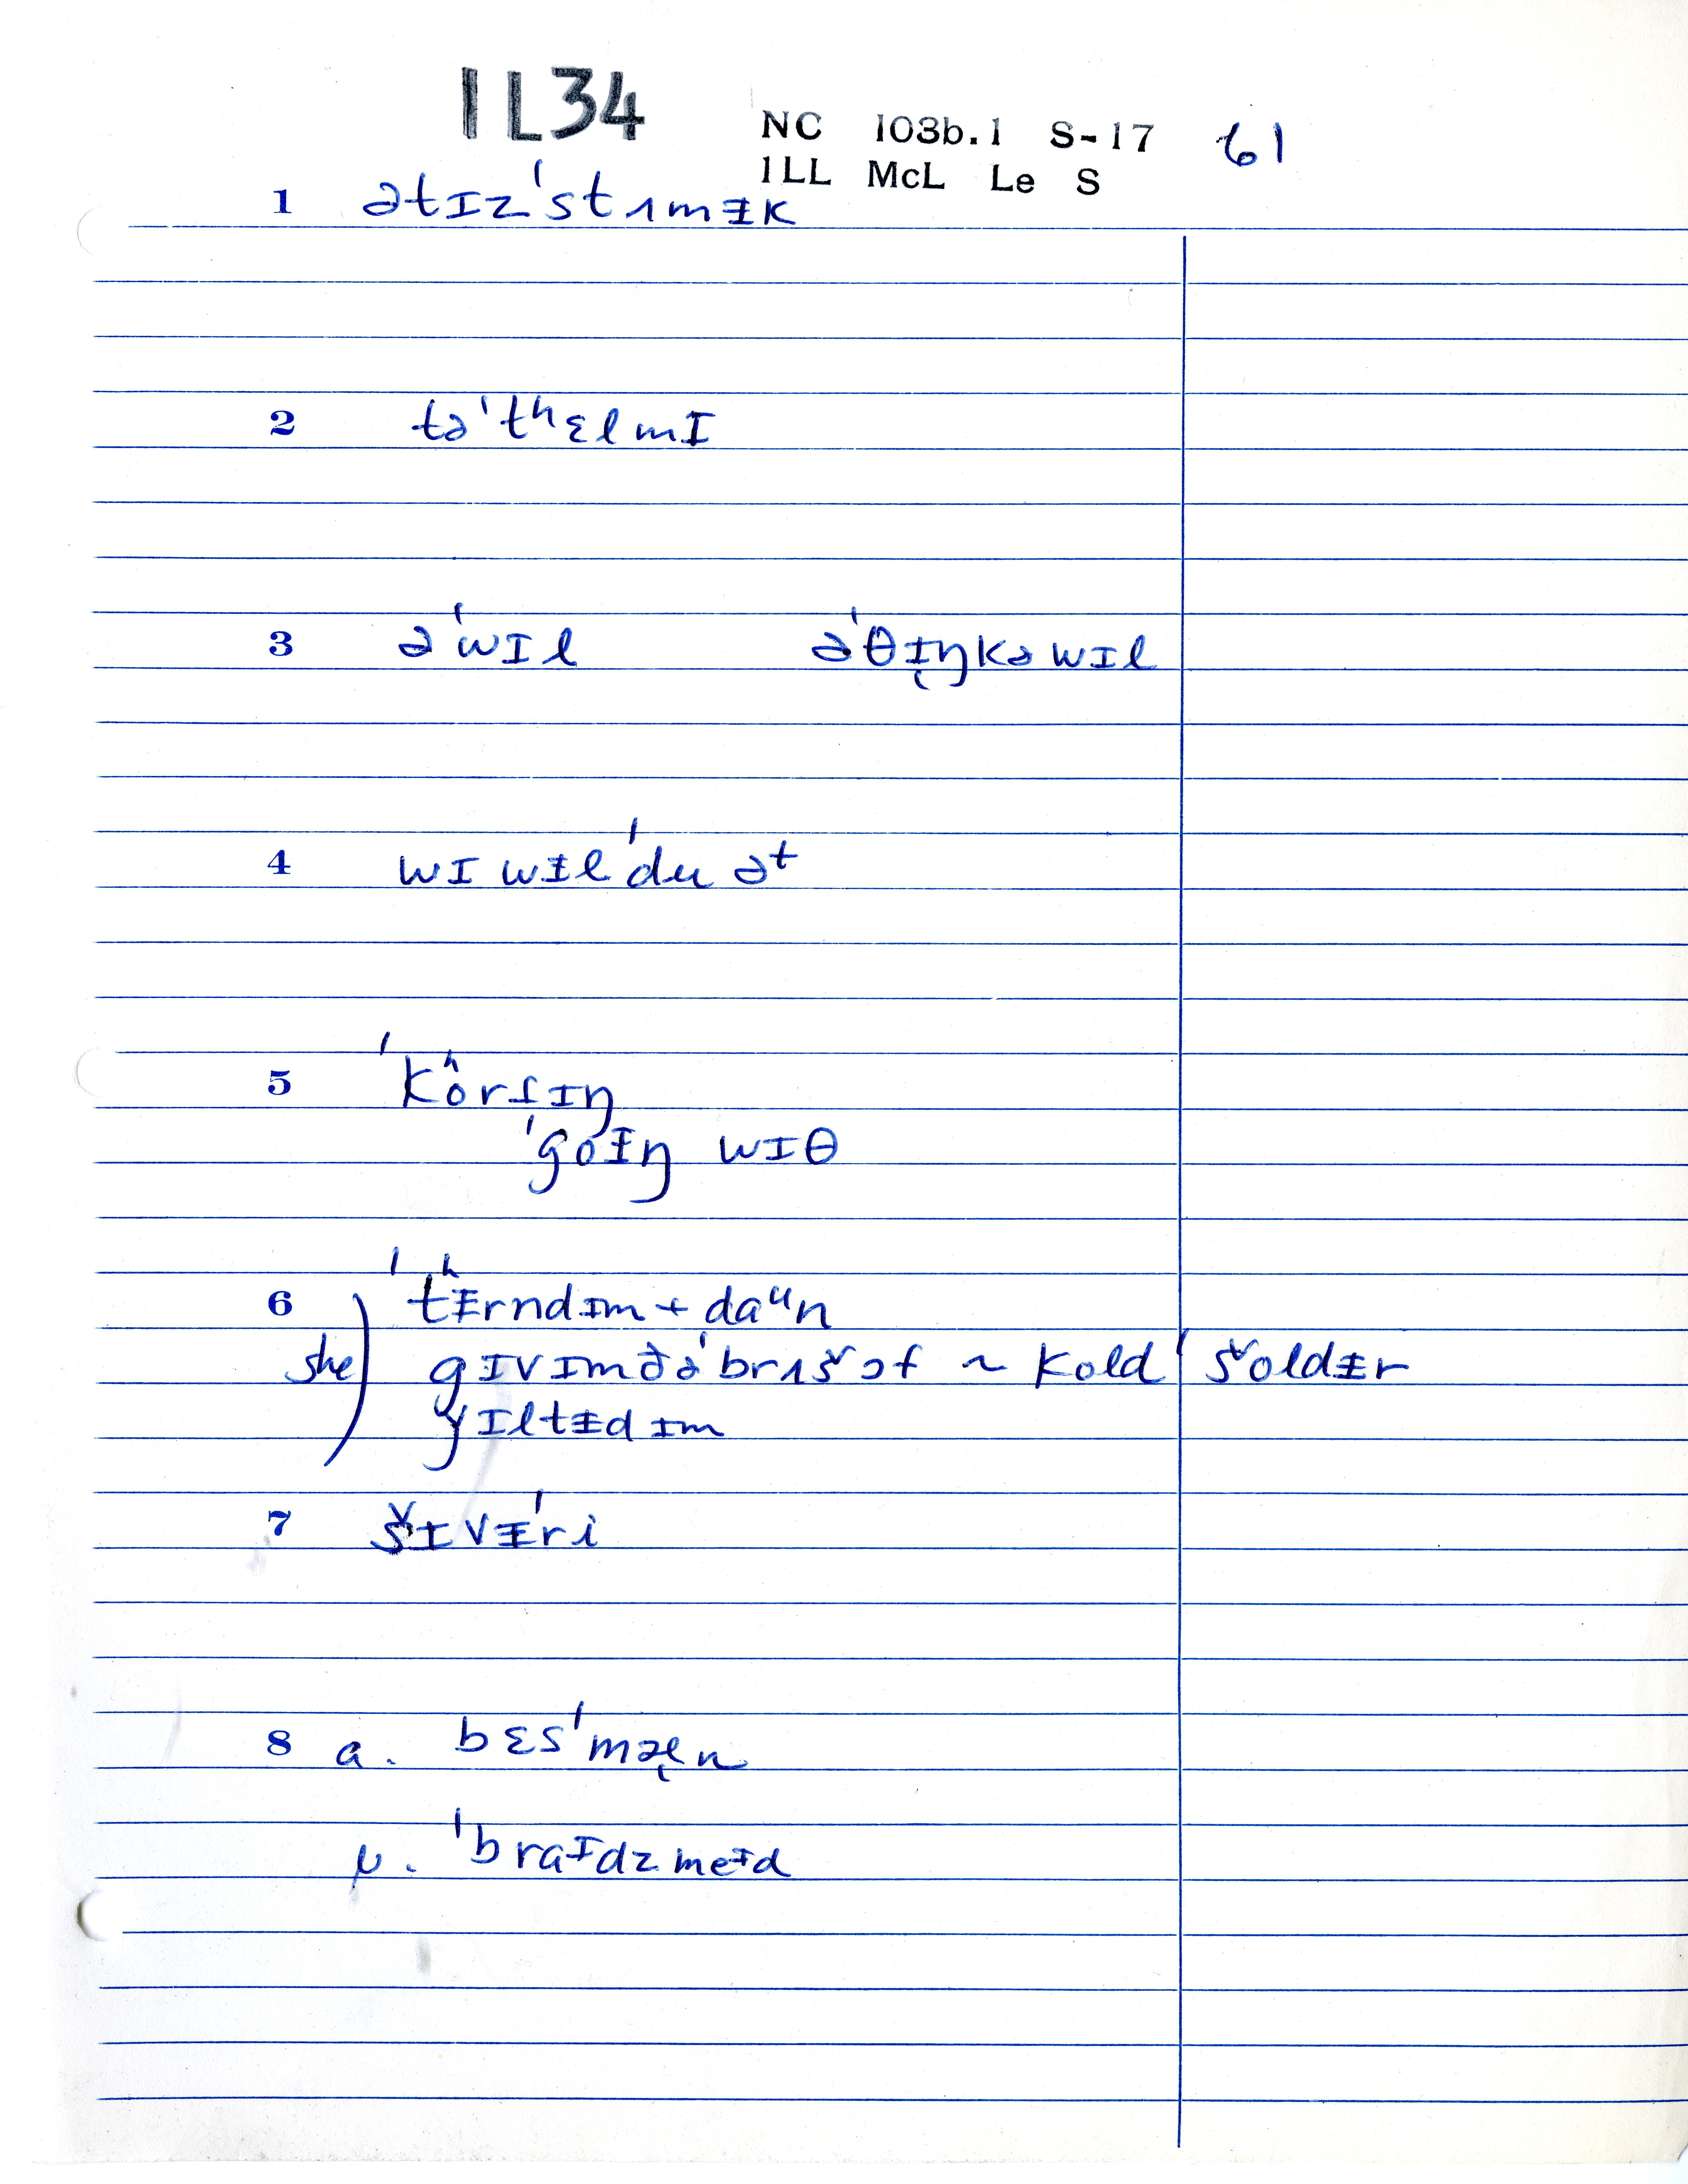 IL34
NC 103b.1 S-17 61
ILL McL Le S
1 ətɪzˈstʌmᵻk
2 təˈtʰɛlmɪ
3 əˈwɪl əˈθɪ̨ŋkəwɪl
4 wɪ wᵻlˈdu əᵗ
5 ˈkʰôrtɪŋ
ˈgoᵻŋ wɪθ
6 ˈtʰᵻrndɪm + daᵘn
she) gɪvɪmðəˈbrʌšɔf ~ kold ˈšoldᵻr
ǰɪltᵻdɪm
7 šɪvᵻˈri
8 a. bɛsˈmæ̨n
b. ˈbraᵻdzmeᵻd